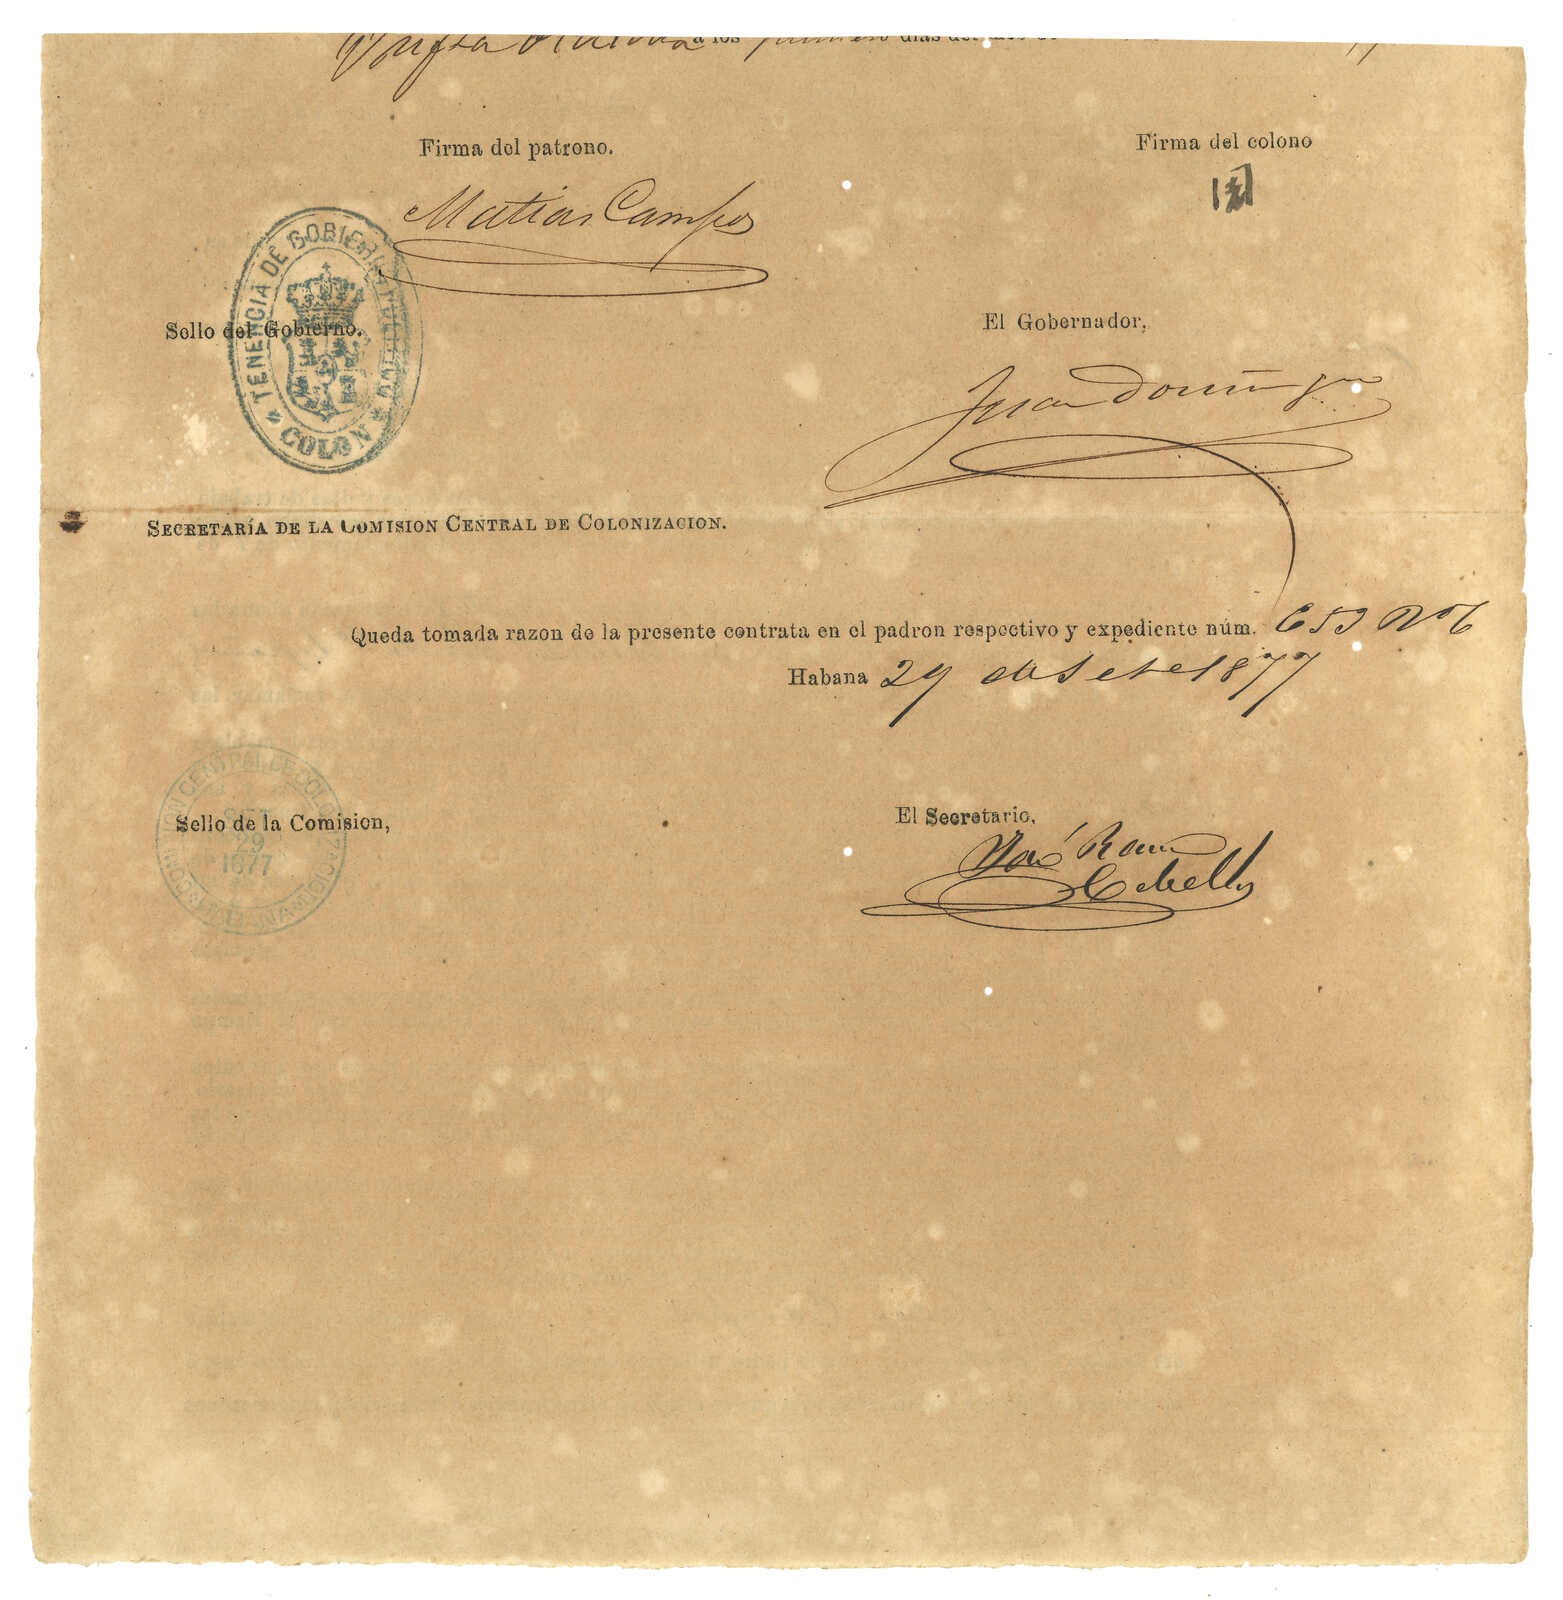 a los primero dias del mes de
Firma del patrono.
Firma del colono
Matias Campos
TENENCIA DE GOBIERNO
COLON
Sello del Gobierno.
El Gobernador,
Juan Doming
SECRETARÍA DE LA COMISION CENTRAL DE COLONIZACION.
Queda tomada razon de la presente contrata en el padron respectivo y expediente núm. 653
Habana 29 de Set e 1877
COMISION CENTRAL DE COLONIZACION
SET
29
1877
HABANA
Sello de la Comision,
El Secretario,
José Ram
Cabello